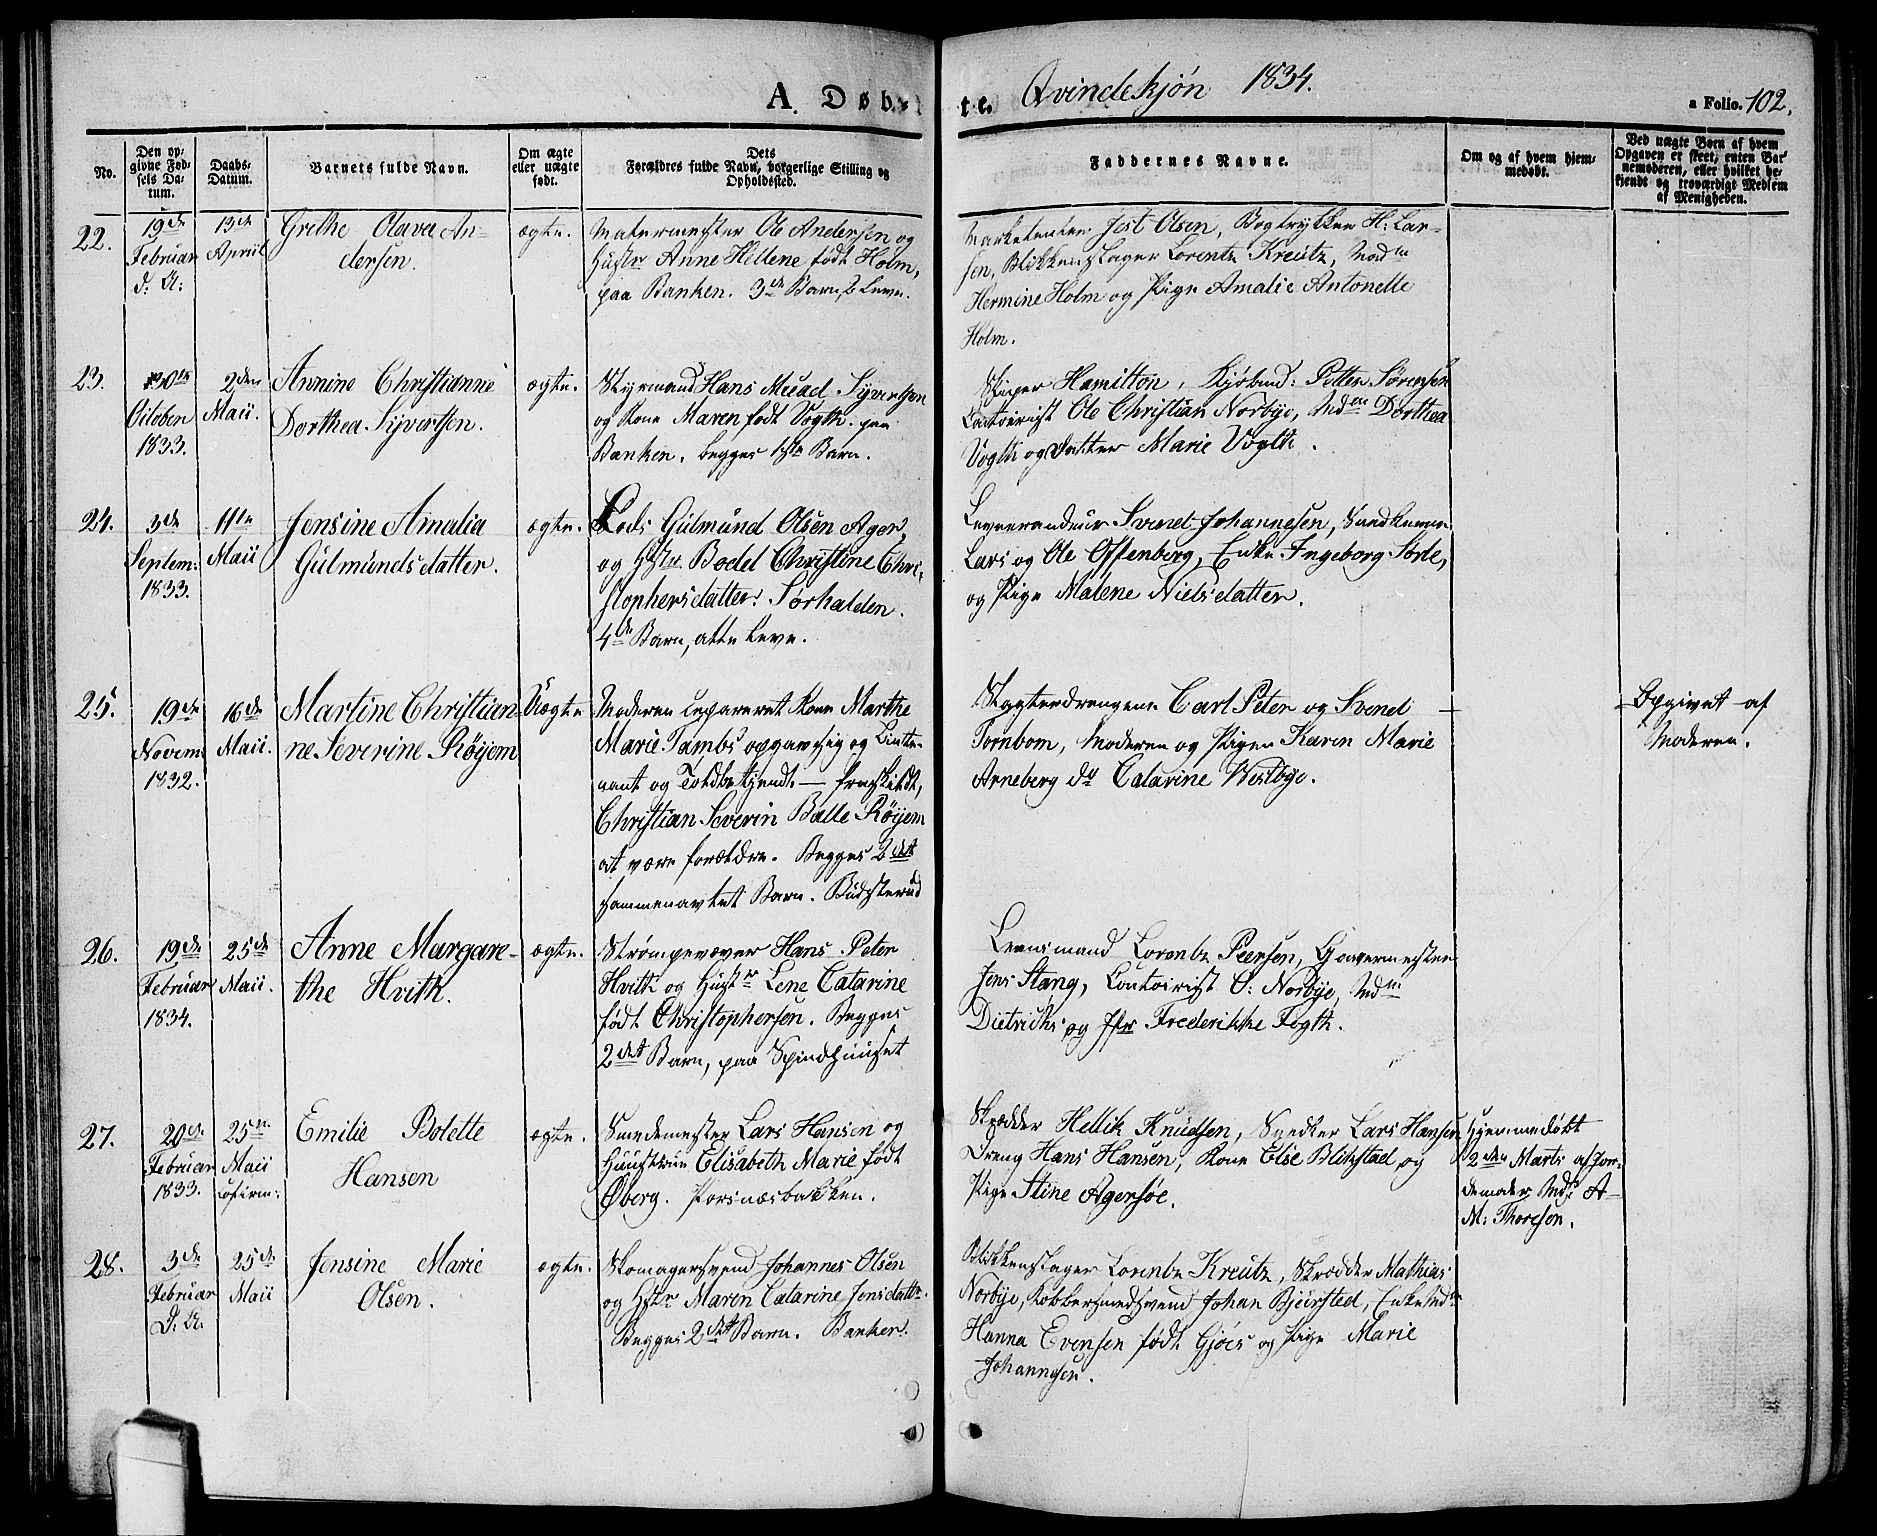 A. Døb-
te. Qvindekjøn 1834.
a Folio. 102.
No.
Den op-
givne Fød-
sels Da-
tum.
Daabs-
Datum.
Barnets fulde Navn.
Om ægte
eller uægte
født.
Dets
Forældres fulde Navn, borgerlige Stilling og
Opholdssted.
Faddernes Navne.
Om og af hvem hjem-
medøbt.
Ved uægte Born af hvem
Opgaven er skeet, enten Bar-
nemoderen, eller hvilket be-
kjendt og troværdigt Medlem
af Menigheden.
22.
19de
Februar
d: A:
13de
April
Grethe Olava An-
dersen.
ægte.
Matermester Ole Andersen og
Hustr Anne Hellene født Holm,
paa Banken. 3de Barn, 2 Leve.
Marketenter Jest Olsen, Bogtrykker H: Lar-
sen, Blikkenslager Lorentz Kreutz, Mad
Hermine Holm og Pige Amalie Antonette
Holm.
23.
30te
October
1833.
2den
Maii.
Annine Christianne
Dorthea Syvertsen.
ægte.
Styrmand Hans Muad Syvertsen
og Kone Maren født Vogth. paa
Banken. begges 1ste Barn.
Skiper Hamilton, Kjøbmd: Petter Sørensen
Contoirist Ole Christian Norbye, Md Dorthea
Vogth og Datter Marie Vogth.
24.
3de
Septem:
1833.
11te
Maii
Jensine Amalia
Gulmundsdatter.
ægte.
Lods Gulmund Olsen Ager,
og Hstr Bodel Christine Chri-
stophersdatter. Sørhalden.
4de Barn, alle Leve.
Leverandeur Svend Johannesen, Snedkerne
Lars og Ole Offenberg, Enke Ingeborg Sørle,
og Pige Malene Nielsdatter.
25.
19de
Novem:
1832.
16de
Maii.
Martine Christian-
ne Severine Røyem
Uægte
Moderen separeret Kone Marthe
Marie Tambs opgav sig og Lieute-
nant og Toldbetjendt — fraskildt,
Christian Severin Balle Røyem
at være forældre. Begges 2det
sammenavlet Barn. Budsterud
Slagterdrengene Carl Peter og Svend
Tornbom, Moderen og Piger Karen Marie
Arneberg do Catarine Westbye.
Opgivet af
Moderen.
26.
19de
Februar
1834.
25de
Maii.
Anne Margare-
the Hvith.
ægte.
Strømpevæver Hans Peter
Hvith og Hustr Lene Catarine
født Christophersen. Begges
2det Barn, paa Spindhuuset
Leensmand Lorentz Peersen, Gravermester
Jens Stang, Contoirist O: Norbye, Md
Dietrichs og Jfr Frederikke Fogth.
27.
20de
Februar
1833.
25de
Maii
cofirm:
Emilie Bolette
Hansen
ægte.
Smedemester Lars Hansen og
Huustrue Elisabeth Marie født
Øberg. Porsnæsbakken.
Skrædder Hellik Knudsen, Snedker Lars Hansen
Dreng Hans Hansen, Kone Else Blikstad og
Pige Stine Agersøe.
Hjemmedøbt
2den Marts af Jor-
demoder Md: A
M: Thoresen.
28.
3de
Februar
D: A.
25de
Maii
Jensine Marie
Olsen.
ægte.
Skomagersvend Johannes Olsen
og Hstr Maren Catarine Jensdattr.
Begges 2det Barn. Banken.
Blikkenslager Lorentz Kreutz, Skrædder Mathias
Norbye, Kobbersmedsvend Johan Bjursted, Enke Md
Hanna Evensen født Gjøes og Pige Marie
Johannesen.